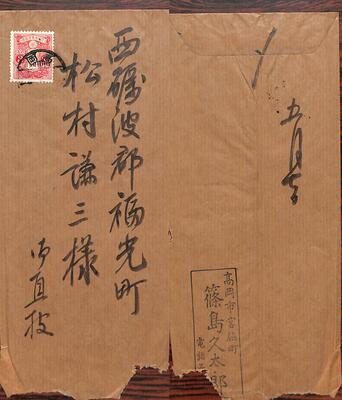 西礪波郡福光町
松村謙三様
御直披
五月
高岡市宮脇町
篠島久太郎
電話